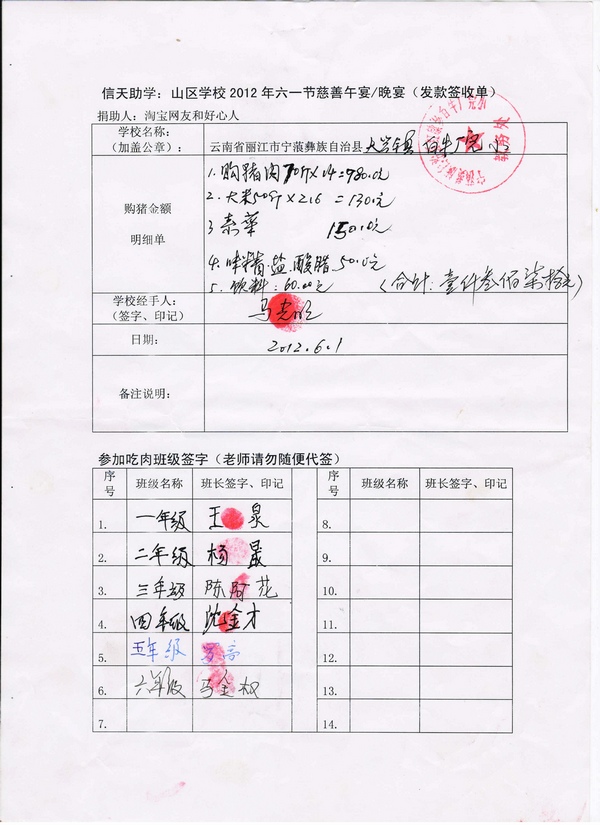 信天助学：山区学校2012年六一节慈善午宴/晚宴（发款签收单）
捐助人：淘宝网友和好心人
学校名称：
（加盖公章）：
云南省丽江市宁蒗彝族自治县 大兴镇 白牛厂完小
购猪金额
明细单
1. 购猪肉 70斤×14=980.0
2. 大米50斤×2.6=130元
3 素菜 150.0元
4. 味精.盐.酸腊 50.0元
5. 饮料：60.00元 （合计：壹仟叁佰柒拾元
学校经手人：
（签字、印记）
马光明
日期：
2012.6.1
备注说明：
参加吃肉班级签字（老师请勿随便代签）
序号 班级名称 班长签字、印记 序号 班级名称 班长签字、印记
1. 一年级 王 泉 8.
2. 二年级 杨 9.
3. 三年级 陈 花 10.
4. 四年级 沈金才 11.
5. 五年级 12.
6. 六年级 马金权 13.
7. 14.